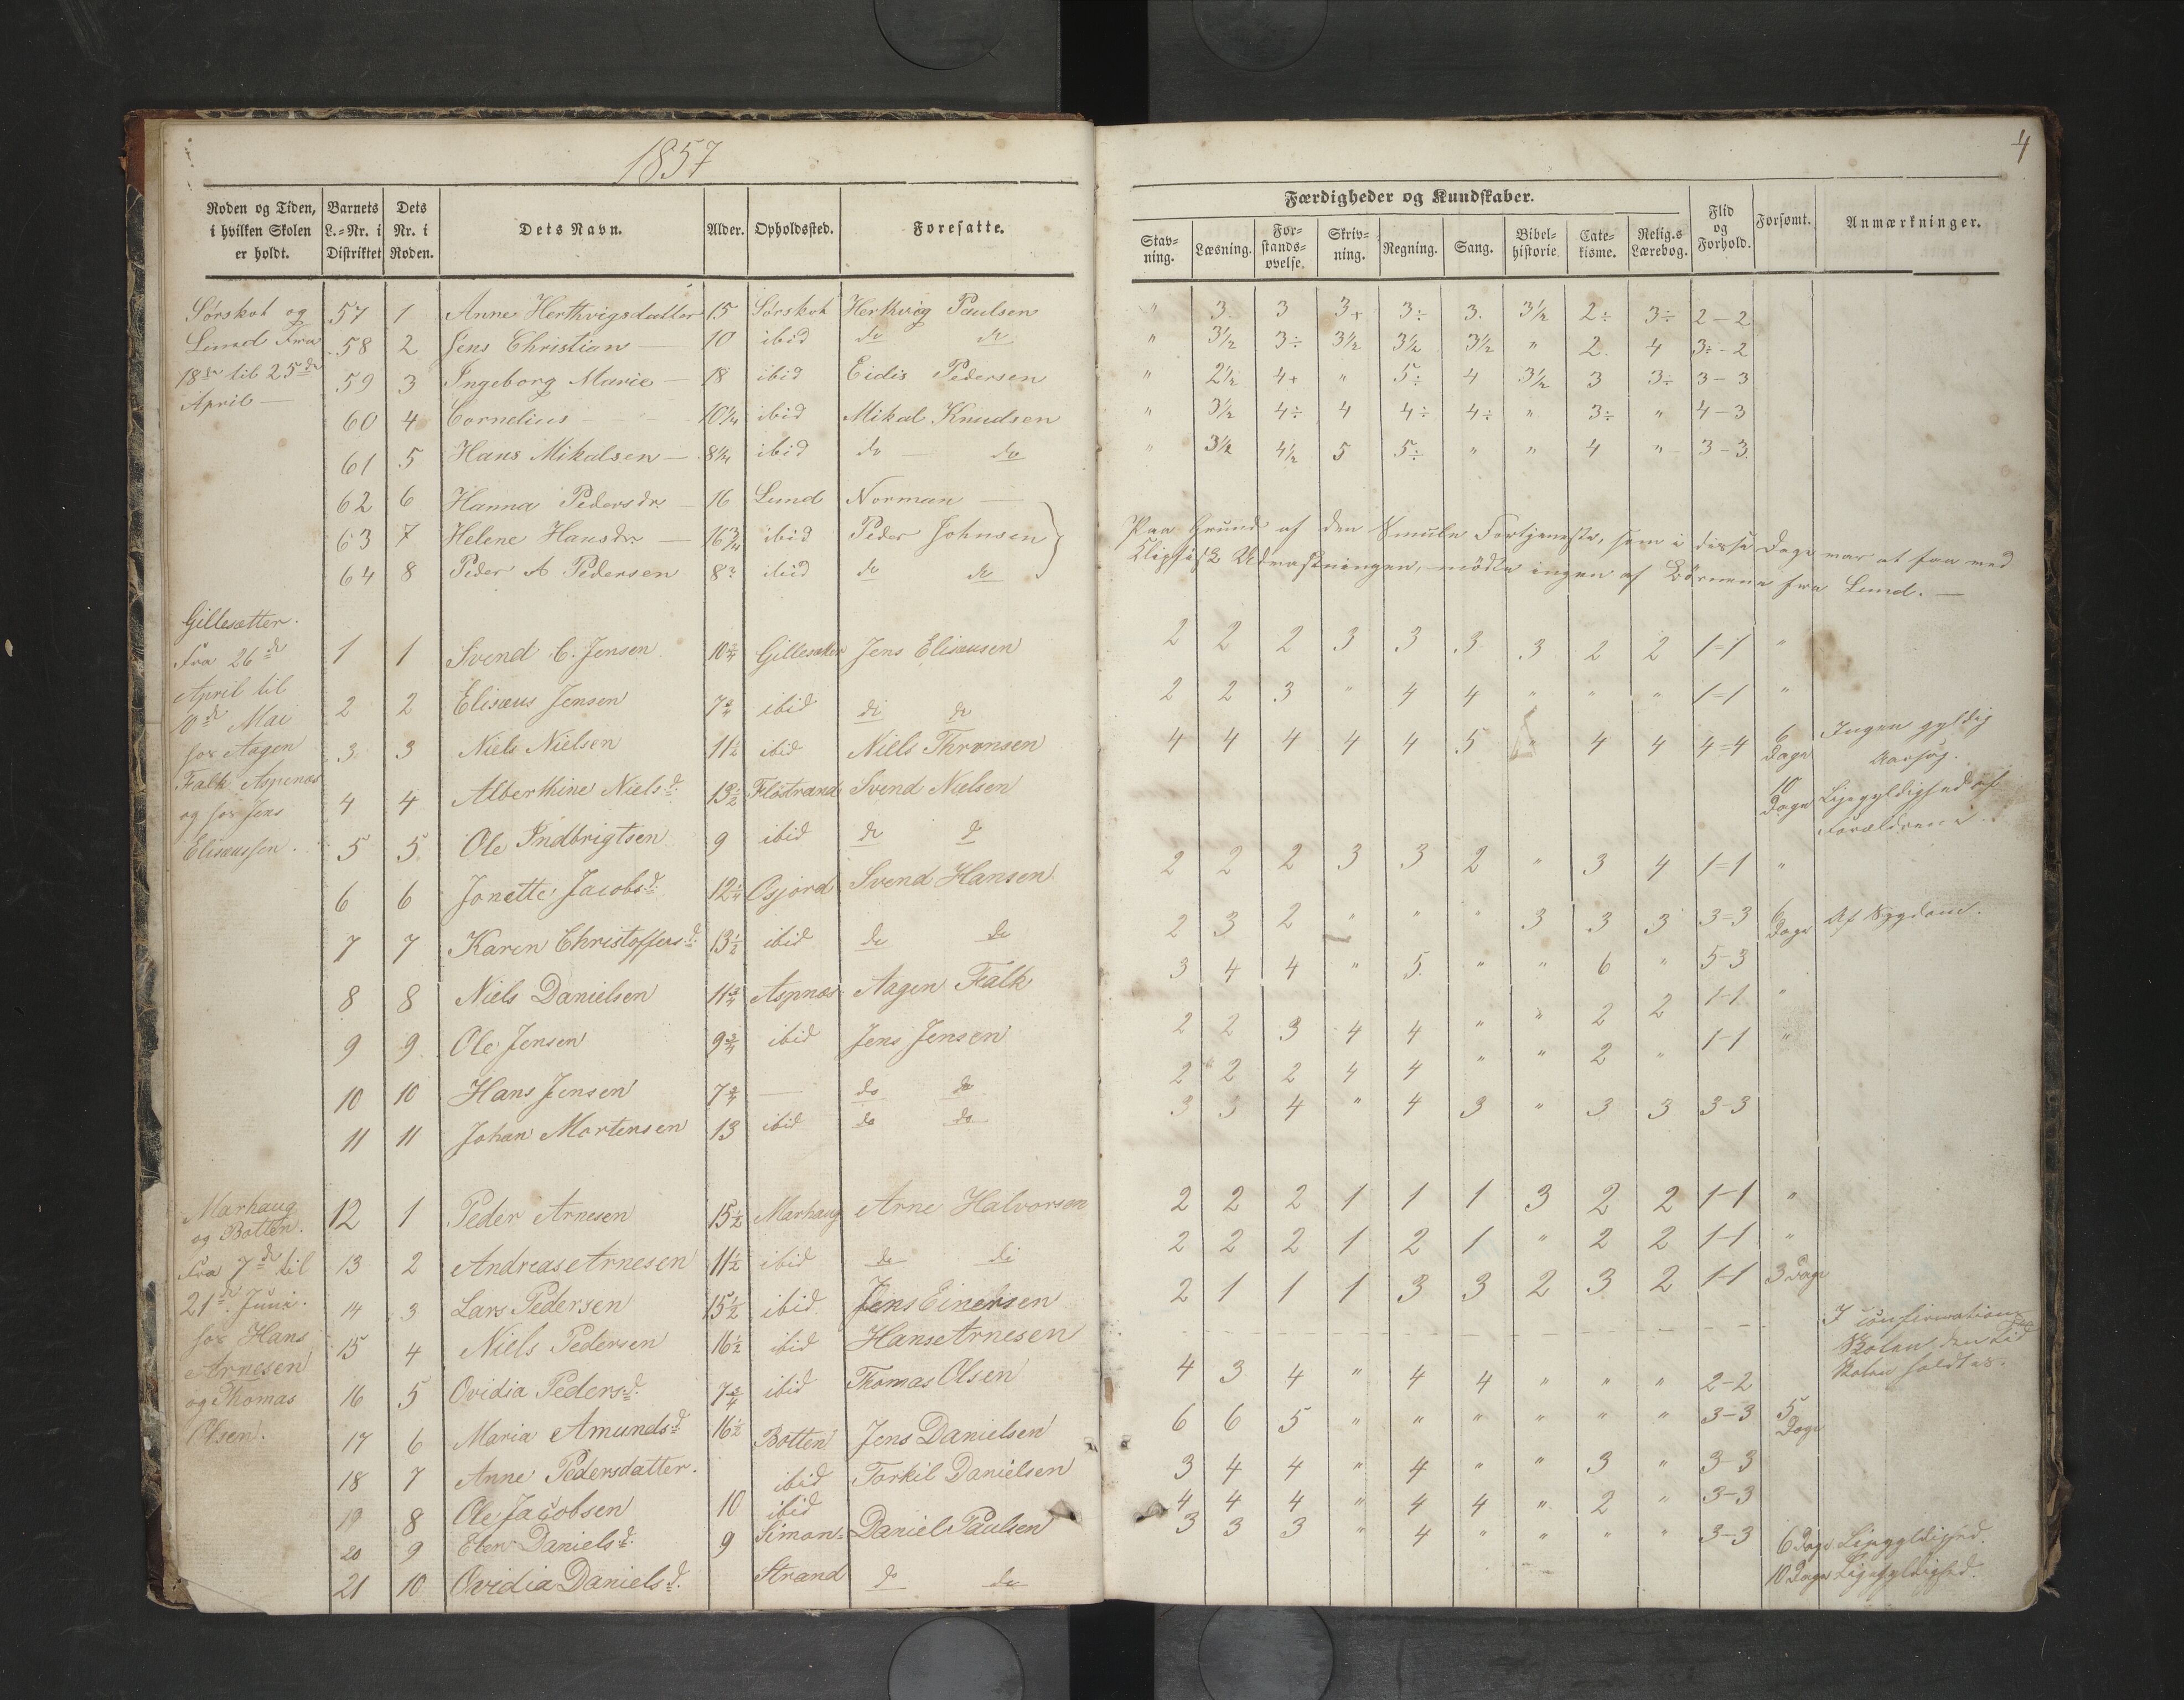 1857
4
Roden og Tiden, i hvilken Skolen er holdt. | Barnets L.-Nr. i Distriktet | Dets Nr. i Roden. | Dets Navn. | Alder. | Opholdssted. | Foresatte.
Færdigheder og Kundskaber.
Stavning. | Læsning. | Forstandsøvelse. | Skrivning. | Regning. | Sang. | Bibelhistorie | Catekisme. | Relig.s Lærebog. | Flid og Forhold. | Forsømt. | Anmærkninger.
Sørskot og | 57 | 1 | Anne Herthvigsdatter | 15 | Sørskot | Herthvig Paulsen | " | 3. | 3 | 3+ | 3÷ | 3. | 3½ | 2÷ | 3÷ | 2-2
Lund Fra | 58 | 2 | Jens Christian — | 10 | ibid | do do | " | 3½ | 3÷ | 3½ | 3½ | 3½ | " | 2. | 4 | 3÷-2
18de til 25de | 59 | 3 | Ingeborg Marie — | 18 | ibid | Eidis Pedersen | " | 2½ | 4+ | " | 5÷ | 4 | 3½ | 3 | 3÷ | 3-3
April — | 60 | 4 | Cornelius — | 10¼ | ibid | Mikal Knudsen | " | 3½ | 4÷ | 4 | 4÷ | 4÷ | " | 3÷ | " | 4-3
61 | 5 | Hans Mikalsen — | 8¾ | ibid | do — do | " | 3½ | 4½ | 5 | 5÷ | " | " | 4 | " | 3-3.
62 | 6 | Hanna Pedersdr. — | 16 | Lund | Norman —
63 | 7 | Helene Hansdr. — | 16¾ | ibid | Peder Johnsen
64 | 8 | Peder A Pedersen | 8 | ibid | do do
Paa Grund af den Smule Fortjeneste, som i disse Dage var at faa ved
Klipfisk Udvaskningen, mödte ingen af Börnene fra Lund. —
Gillesætter.
Fra 26de | 1 | 1 | Svend C. Jensen | 10¾ | Gillesæter | Jens Elisæusen | 2 | 2 | 2 | 3 | 3 | 3 | 3 | 2 | 2 | 1=1 | "
April til | 2 | 2 | Elisæus Jensen | 7¾ | ibid | do do | 2 | 2 | 3 | " | 4 | 4 | " | " | " | 1=1 | "
10de Mai
hos Aagen | 3 | 3 | Niels Nielsen | 11½ | ibid | Niels Thronsen | 4 | 4 | 4 | 4 | 4 | 5 | " | 4 | 4 | 4=4 | 6 Dage | Ingen gyldig Aarsag.
Falk Aspenæs
og hos Jens | 4 | 4 | Alberthine Nielsd. | 13½ | Flostrand | Svend Nielsen | 10 Dage | Ligegyldighed af Forældrene.
Elisæussen. | 5 | 5 | Ole Indbrigtsen | 9 | ibid | do do | 2 | 2 | 2 | 3 | 3 | 2 | " | 3 | 4 | 1=1 | "
6 | 6 | Jonette Jacobsd. | 12¼ | Osjord | Svend Hansen | 2 | 3 | 2 | " | " | " | 3 | 3 | 3 | 3=3 | 6 Dage | Af Sygdom.
7 | 7 | Karen Christoffersd. | 13½ | ibid | do do | 3 | 4 | 4 | " | 5 | " | " | 6 | " | 5-3
8 | 8 | Niels Danielsen | 11¾ | Aspnæs | Aagen Falk | 2 | 2 | 3 | 4 | 4 | " | " | 2 | 2 | 1-1 | "
9 | 9 | Ole Jensen | 9¾ | ibid | Jens Jensen | 2 | 2 | 2 | 4 | 4 | " | " | 2 | " | 1-1 | "
10 | 10 | Hans Jensen | 7¾ | — | do do | 3 | 3 | 4 | " | 4 | 3 | " | 3 | 3 | 3-3
11 | 11 | Johan Mortensen | 13 | ibid | do do
Marhaug
og Botten. | 12 | 1 | Peder Arnesen | 15½ | Marhaug | Arne Halvorsen | 2 | 2 | 2 | 1 | 1 | 1 | 3 | 2 | 2 | 1-1 | "
Fra 7de til | 13 | 2 | Andreas Arnesen | 11½ | ibid | do do | 2 | 2 | 2 | 1 | 2 | 1 | " | 2 | 2 | 1-1 | "
21de Juni. | 14 | 3 | Lars Pedersen | 15½ | ibid | Jens Einersen | 2 | 1 | 1 | 1 | 3 | 3 | 2 | 3 | 2 | 1-1 | 3 Dage
hos Hans | 15 | 4 | Niels Pedersen | 16½ | ibid | Hans Arnesen | I confirmations Skolen den tid Skolen holdtes.
Arnesen
og Thomas | 16 | 5 | Ovidia Pedersd. | 7¾ | ibid | Thomas Olsen | 4 | 3 | 4 | " | 4 | 4 | " | " | " | 2-2
Olsen. | 17 | 6 | Maria Amundsd. | 16½ | Botten | Jens Danielsen | 6 | 6 | 5 | " | " | " | " | " | " | 3-3 | 5 Dage
18 | 7 | Anne Pedersdatter. | ibid | Torkil Danielsen | 3 | 4 | 4 | " | 4 | " | " | 3 | " | 3-3
19 | 8 | Ole Jacobsen | 10 | ibid | 4 | 4 | 4 | " | 4 | 4 | " | 2 | " | 3-3
20 | 9 | Elen Danielsd. | 9 | Simon- | Daniel Paulsen | 3 | 3 | 3 | " | 4 | " | " | " | " | 3-3 | 6 Dage | Ligegyldighed.
21 | 10 | Ovidia Danielsd. | Strand | do do | 10 Dage | Ligegyldighed.